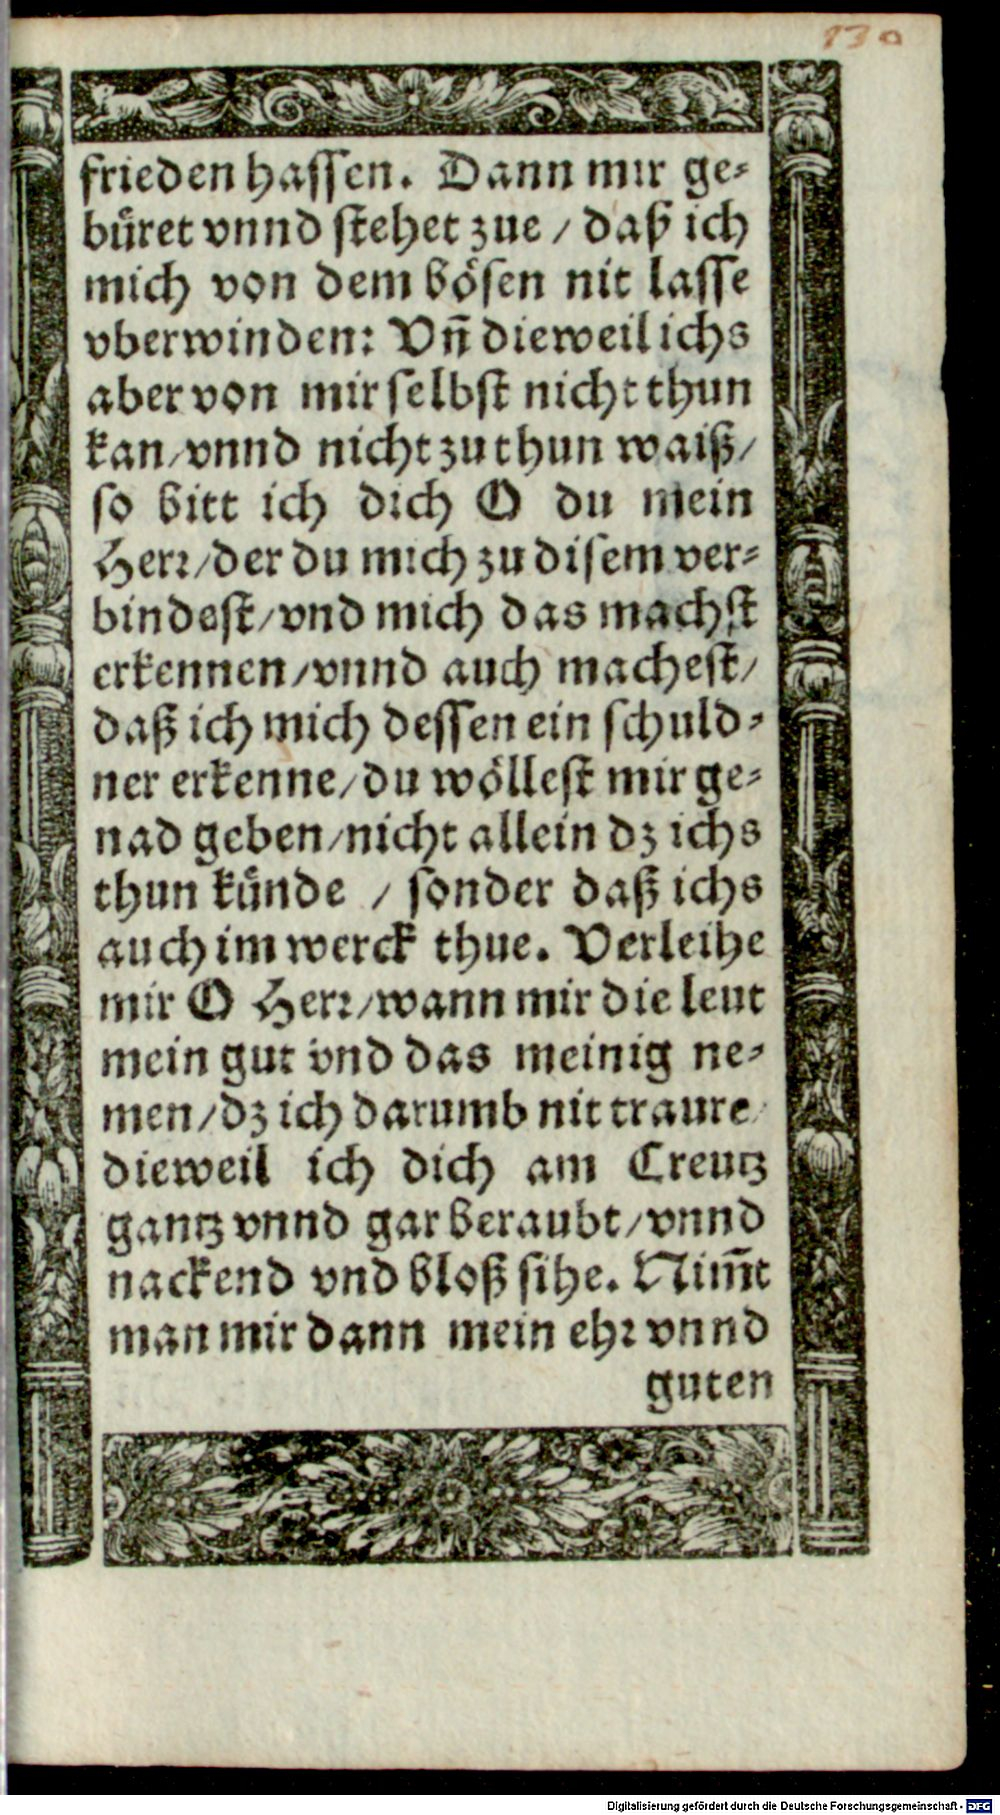 130
frieden hassen. Dann mir ge-
büret vnnd stehet zue / daß ich
mich von dem bösen nit lasse
vberwinden: Vn̄ dieweil ichs
aber von mir selbst nicht thun
kan / vnnd nicht zu thun waiß /
so bitt ich dich O du mein
Herr / der du mich zu disem ver-
bindest / vnd mich das machst
erkennen / vnnd auch machest /
daß ich mich dessen ein schuld-
ner erkenne / du wöllest mir ge-
nad geben / nicht allein dz ichs
thun künde / sonder daß ichs
auch im werck thue. Verleihe
mir O Herr / wann mir die leut
mein gut vnd das meinig ne-
men / dz ich darumb nit traure /
dieweil ich dich am Creutz
gantz vnnd gar beraubt / vnnd
nackend vnd bloß sihe. Nim̄t
man mir dann mein ehr vnnd
guten
Digitalisierung gefördert durch die Deutsche Forschungsgemeinschaft - DFG